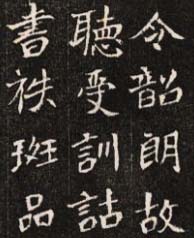 令韶朗故
聽受訓詁
書袟班品